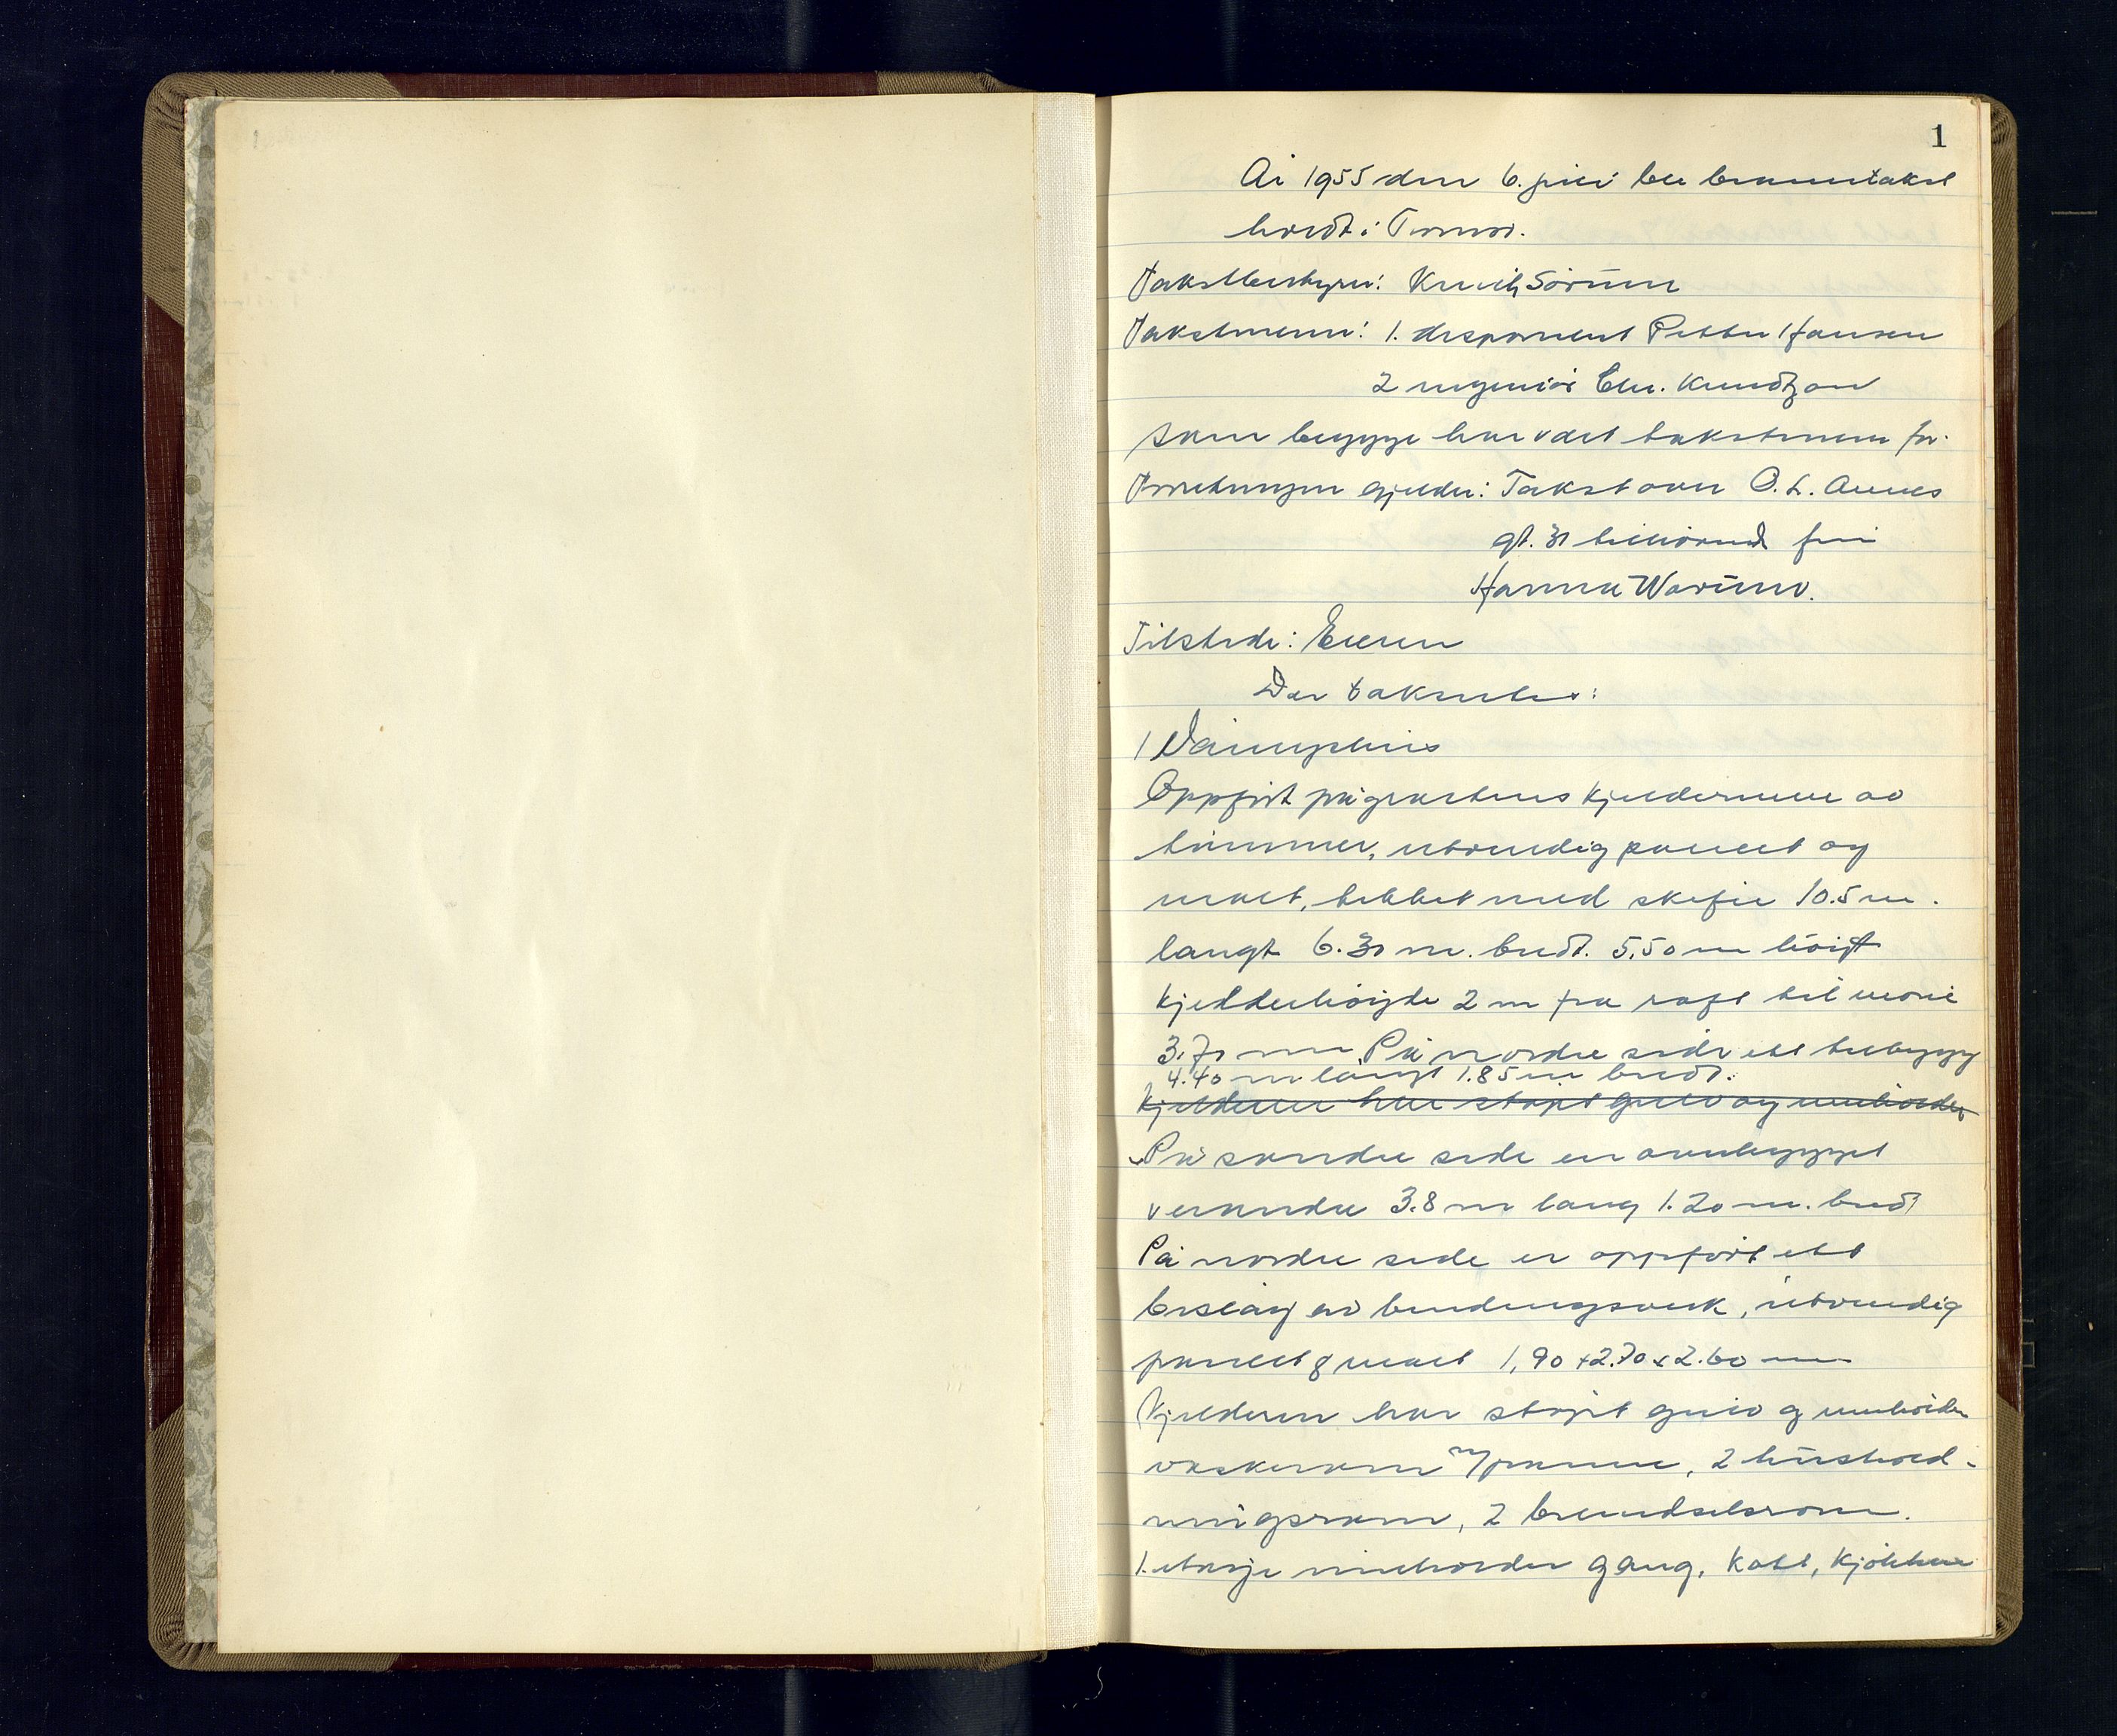 1
År 1955 den 6. juli ble branntakst
holdt i Tromsø.
Takstbestyrer: Knut Sörum
Takstmenn: 1. disponent Petter Hansen
2 ingeniör Chr. Knudtzon
som begge har vært takstmenn för.
Forretningen gjelder: Takst over O. L. Aunes
gt. 31 tilhörende fru
Hanna Warum.
Tilstede: Eieren
Der takseres:
1 Våningshus
Oppfört på gråstens kjeldermur av
tömmer, utvendig panelt og
malt, tekket med skifer 10.5 m.
langt 6.30 m. bredt. 5.50 m höigt
kjellerhöigde 2 m fra raft til möne
3.70 m. På nordre side ett tilbygg
4.40 m langt 1.85 m bredt.
Kjelderen har stöpt gulv og inneholder
På söndre side en overbygget
veranda 3.8 m lang 1.20 m. bred
På nordre side er oppfört ett
bislag av bindingsverk, utvendig
panelt & malt 1,90 x 2.70 x 2.60 m
Kjelderen har stöpt gulv og inneholder
vaskerom m/panne, 2 hushold-
ningsrom, 2 brendselsrom.
1. etasje inneholder gang, kott, kjökken